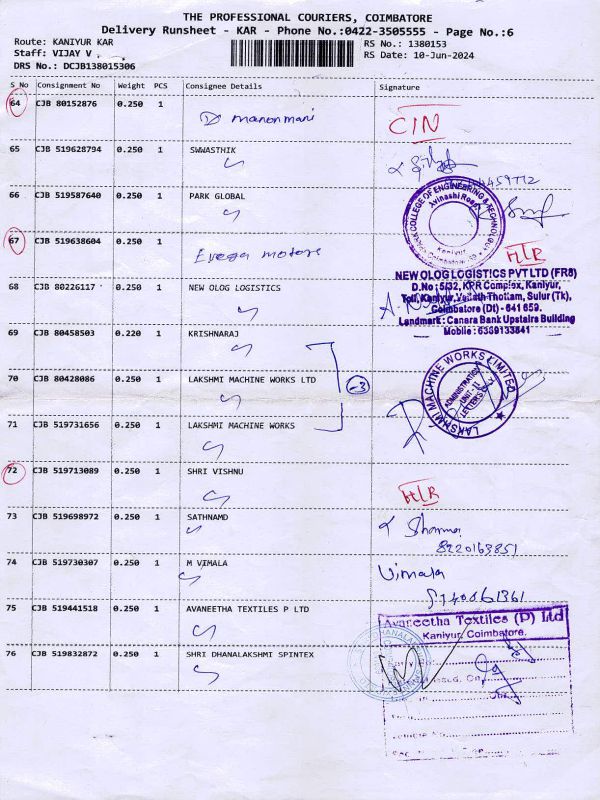 THE PROFESSIONAL COURIERS, COIMBATORE
Delivery Runsheet - KAR - Phone No.:0422-3505555 - Page No.:6
Route: KANIYUR KAR
Staff: VIJAY V
DRS No.: DCJB138015306
RS No.: 1380153
RS Date: 10-Jun-2024
S No Consignment No Weight PCS Consignee Details Signature
64 CJB 80152876 0.250 1 manonmani CIN
65 CJB 519628794 0.250 1 SWWASTHIK
66 CJB 519587640 0.250 1 PARK GLOBAL
COLLEGE OF ENGINEERING & TECHNOLOGY
Avinashi Road
Kaniyur
67 CJB 519638604 0.250 1 motors
68 CJB 80226117 0.250 1 NEW OLOG LOGISTICS
NEW OLOG LOGISTICS PVT LTD (FR8)
D.No : 5/32, KPR Complex, Kaniyur,
Toll, Kaniyur, Thottam, Sulur (Tk),
Coimbatore (Dt) - 641 659.
Landmark : Canara Bank Upstairs Building
Mobile : 6369133841
69 CJB 80458503 0.220 1 KRISHNARAJ
70 CJB 80428086 0.250 1 LAKSHMI MACHINE WORKS LTD
-3
LAKSHMI MACHINE WORKS LIMITED
ADMINISTRATION
UNIT - II
LETTERS ONLY
71 CJB 519731656 0.250 1 LAKSHMI MACHINE WORKS
72 CJB 519713089 0.250 1 SHRI VISHNU
73 CJB 519698972 0.250 1 SATHNAMD
8220163851
74 CJB 519730307 0.250 1 M VIMALA Vimala
75 CJB 519441518 0.250 1 AVANEETHA TEXTILES P LTD
Avaneetha Textiles (P) Ltd
Kaniyur, Coimbatore.
76 CJB 519832872 0.250 1 SHRI DHANALAKSHMI SPINTEX